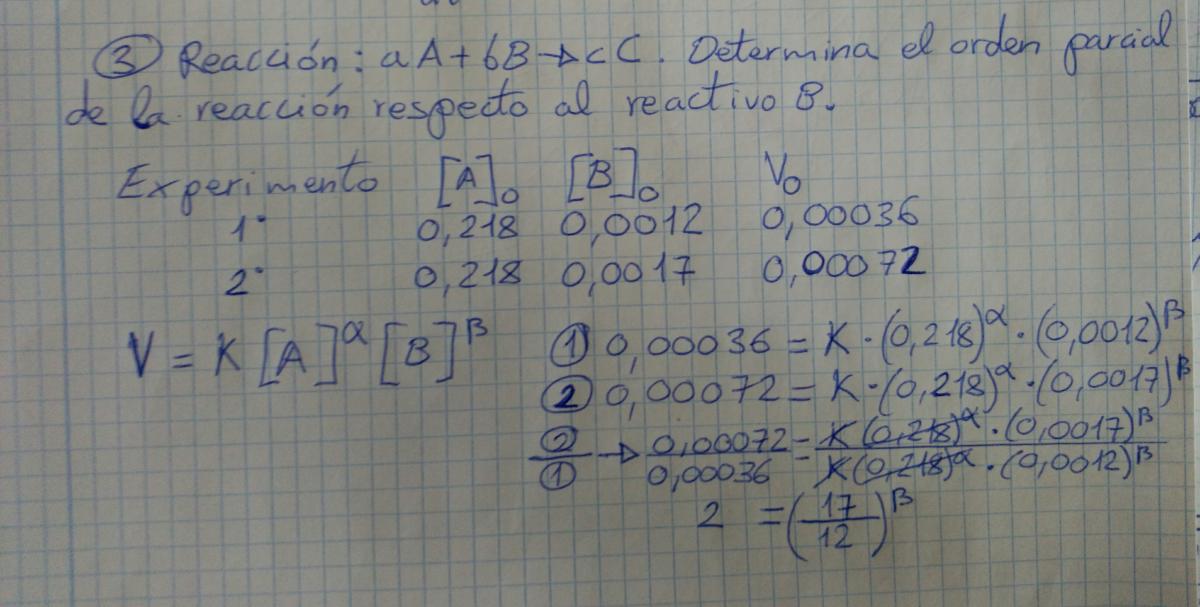 ③ Reacción: aA + bB → cC. Determina el orden parcial
de la reacción respecto al reactivo B.
Experimento [A]₀ [B]₀ V₀
1° 0,218 0,0012 0,00036
2° 0,218 0,0017 0,00072
V = K [A]^α [B]^β
① 0,00036 = K · (0,218)^α · (0,0012)^β
② 0,00072 = K · (0,218)^α · (0,0017)^β
②/① → 0,00072/0,00036 = K(0,218)^α · (0,0017)^β / K(0,218)^α · (0,0012)^β
2 = (17/12)^β